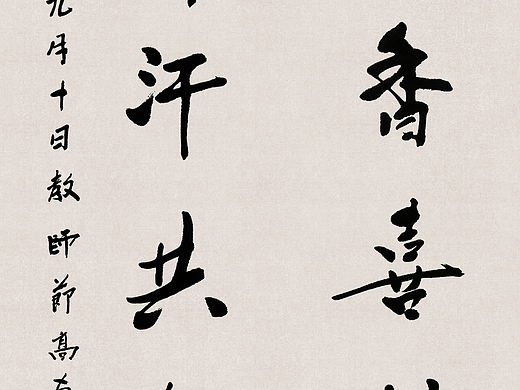 香喜
汗共
九月十日教師節高